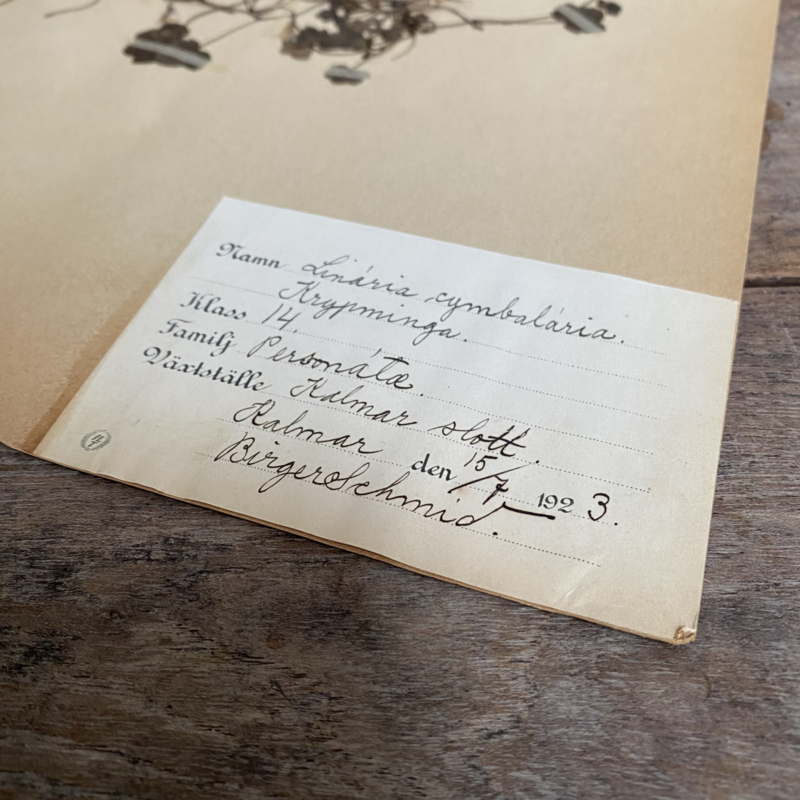 Namn Linária cymbalária.
Krypminga.
Klass 14.
Familj Personátæ.
Växtställe Kalmar slott.
Kalmar den 15/7 1923.
Birger Schmid.